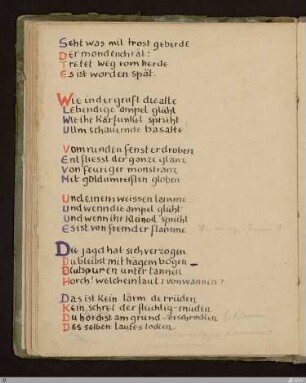 Seht was mit trost geberde
Der mondenchrat:
Tretet weg vom herde
Es ist worden spät.
Wie in der gruft die alte
Lebendige ampel glüht
Wie ihr karfunkel sprüht
Um schauernde basalte
Vom runden fenster droben
Entfliesst der ganze glanz
Von feuriger monstranz
Mit goldumreiften globen
Und einem weissen lamme
Und wenn die ampel glüht
Und wenn ihr kleinod sprüht
Es ist von fremder flamme
Die jagd hat sich verzogen
Du bleibst mit trägem bogen
Blutspuren unter tannen
Horch! welchem laut? von wannen?
Das ist kein lärm der rüden
Kein schrei der flüchtig-müden
Du horchst am grund-erschrocken
Des selben lautes locken